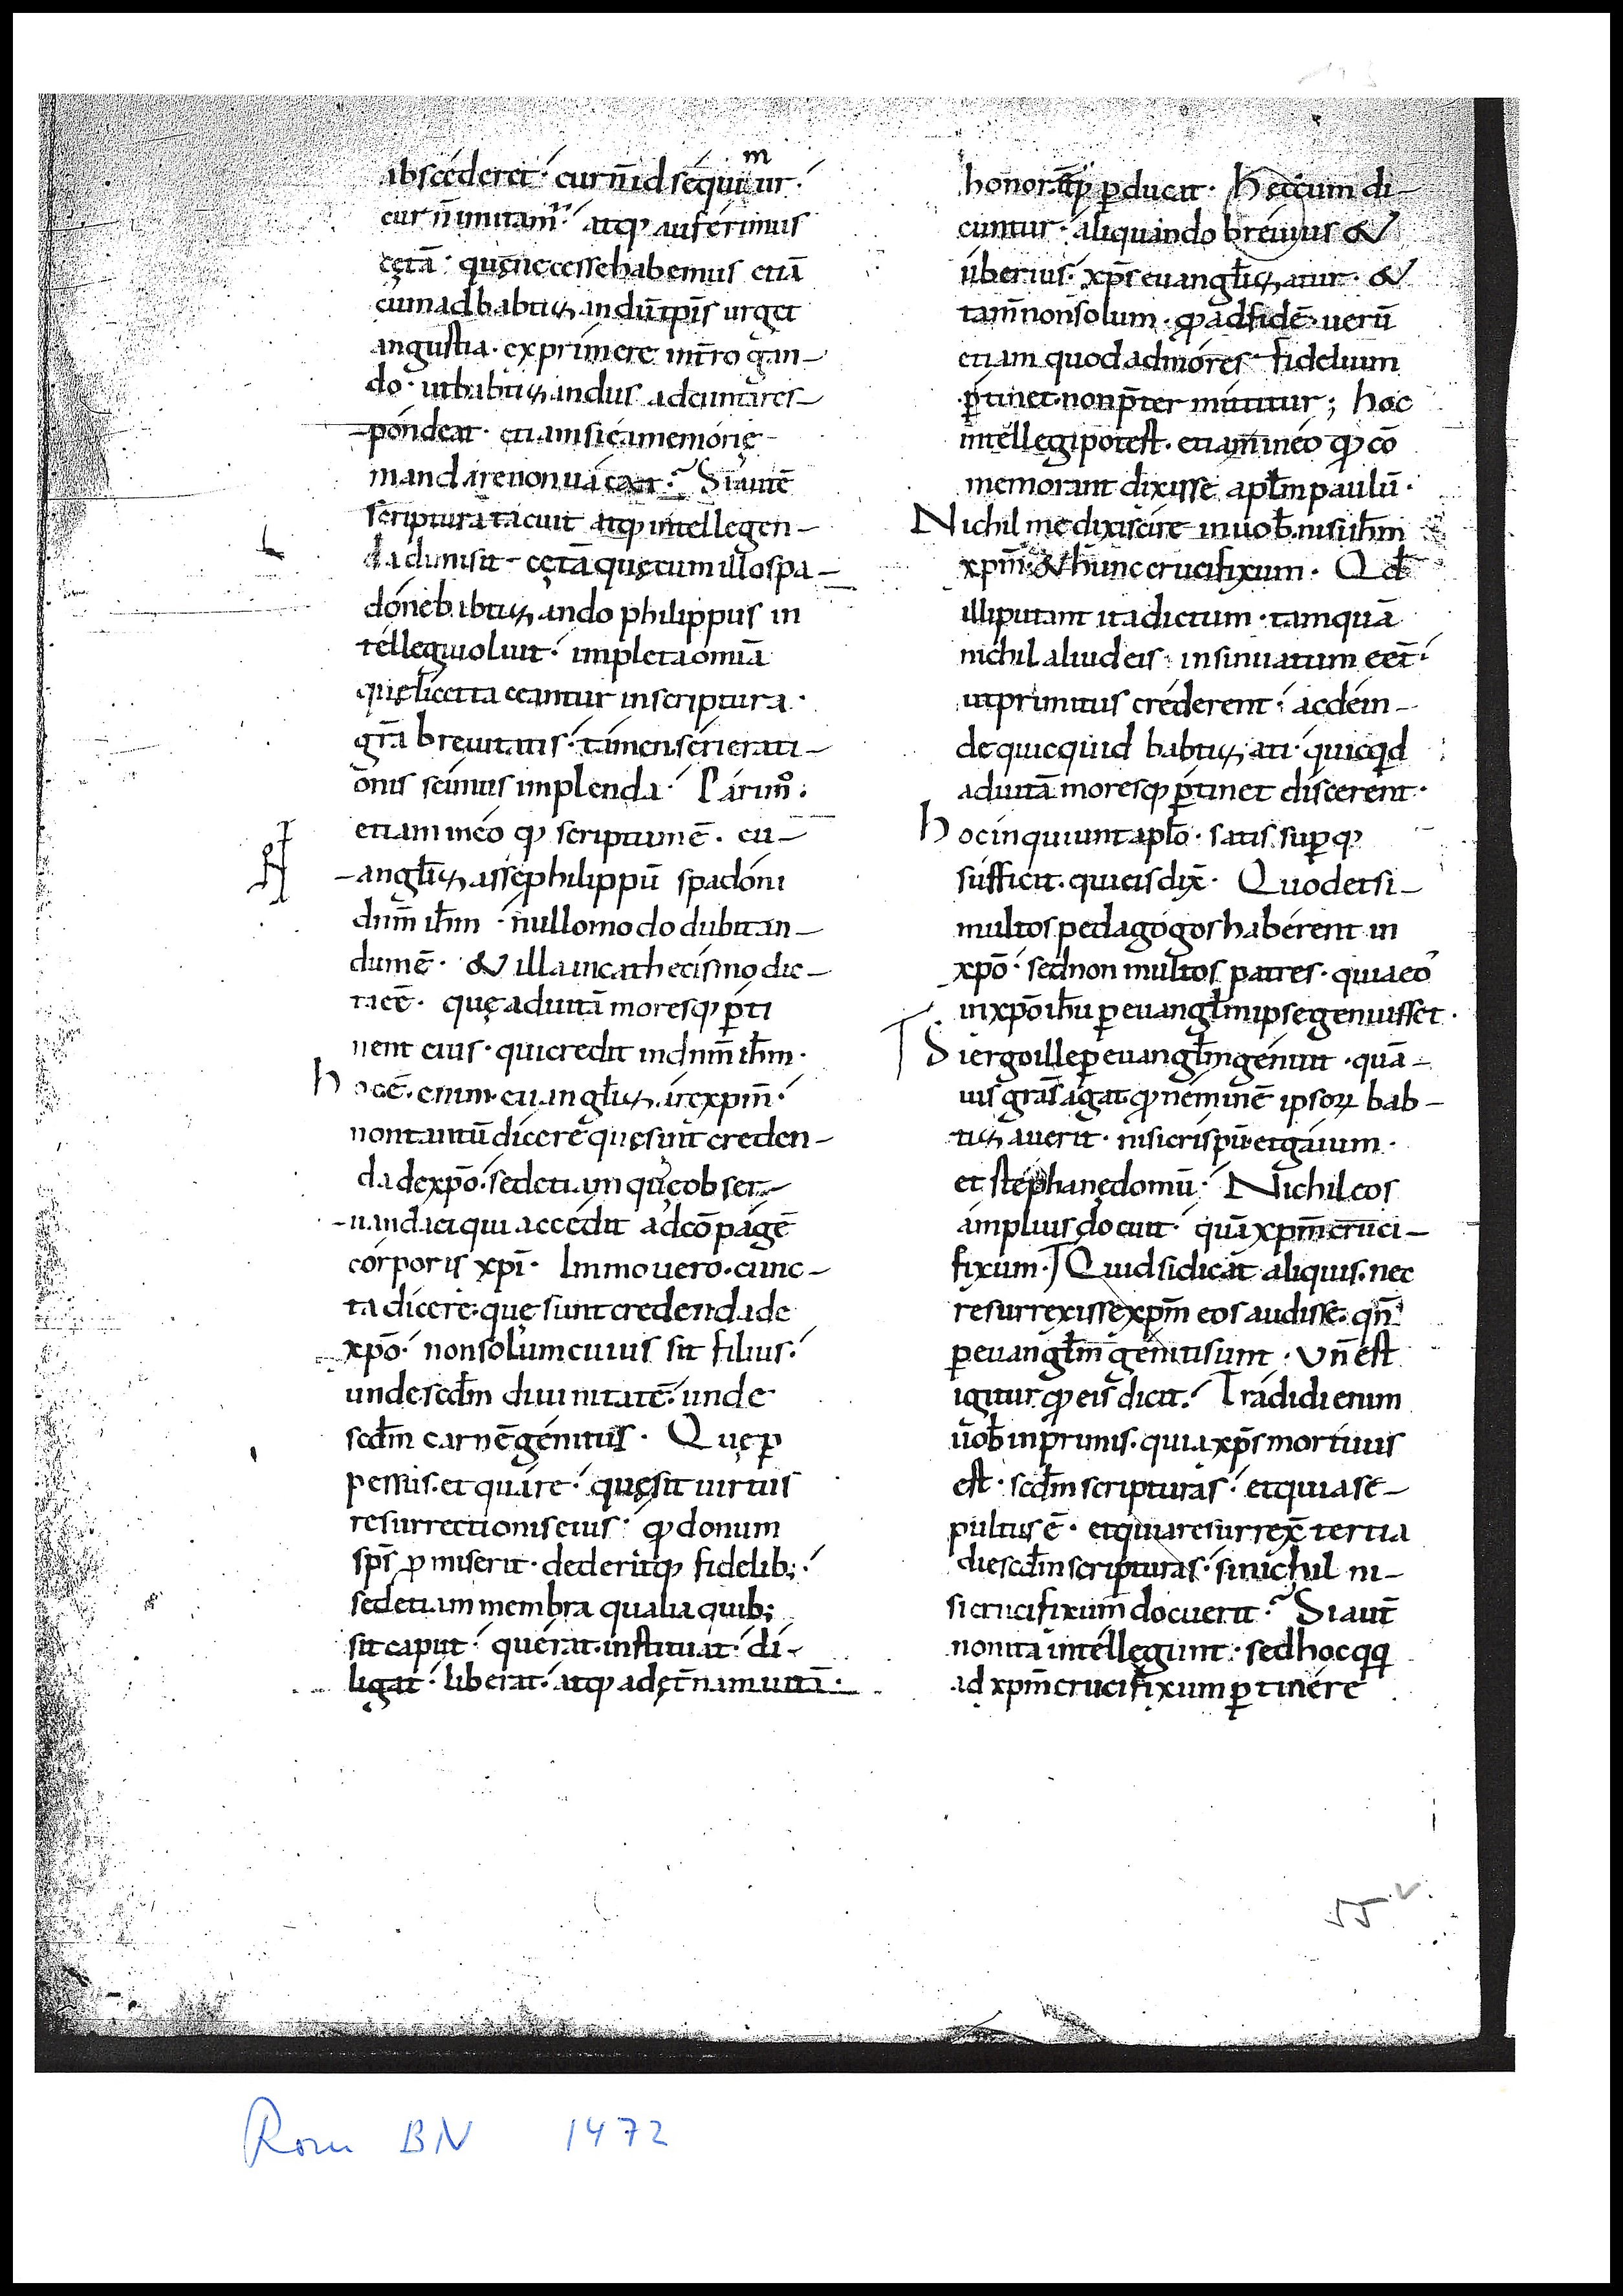 abscederet· cur n̄ id sequim ur·
cur n̄ imitam̄· atq; auferimus
cetā· quę necesse habemus etiā
cum ad babtiz andū tp̄is urget
angustia· exprimere int̄rogan-
do· ut babtiz andus ad cuncta res-
pondeat· etiam si ea memorię
mandare non uacaat· Si autē
scriptura tacuit atq; intellegen-
da dimisit· cetā quę cum illo spa-
done babtiz ando philippus in
tellegi uoluit· impleta om̄ia
quę licet taceantur in scriptura·
gr̄a breuitatis· tamen serie rati-
onis scimus implenda· Parim̊·
etiam in eo q; scriptum ē· eu-
angl̄iz asse philippū spadoni
dn̄m ih̄m· nullomodo dubitan-
dum ē· & illa in cathecismo dic-
ta eē· quę ad uitā moresq; p̄ti
nent eius· qui credit in dn̄m ih̄m·
hoc ē· enim· euangl̄iz are xp̄m·
non tantū dicere quę sunt creden-
da de xp̄o· sed etiam quę obser-
uanda ei qui accedit ad cōpagē
corporis xp̄i· Immo uero· cunc-
ta dicere· quę sunt credenda de
xp̄o· non solum cuius sit filius·
unde scd̄m diuinitatē· unde
scd̄m carnē genitus· Quę p̄
pessus· et quare· quę sit uirtus
resurrectionis eius· q; donum
sp̄s p̄miserit· dederitq; fidelib;·
sed etiam membra qualia quib;
sit caput· querat· instituat· di-
ligat· liberat· atq; ad ęt̄nam uitā·
honorēq; p̄ducat· Hec cum di-
cuntur· aliquando breuius &
uberius· xp̄s euangl̄iz atur· &
tam̄ non solum· q; ad fidē· uerū
etiam quod ad mores fidelium
p̄tinet· non p̄ter mittitur; hoc
intellegi potest· etiam in eo q; cō
memorant dixisse apl̄m paulū·
Nichil me dixi scire in uob̄· nisi ih̄m
xp̄m· & hunc crucifixum· Qd̄
illi putant ita dictum· tamquā
nichil aliud eis· insinuatum eēt·
ut primitus crederent· ac dein-
de quicquid babtiz ati· quicq̄d
ad uitā moresq; p̄tinet discerent·
hoc inquiunt apl̄o· satis sup̄q;
sufficit· qui eis dix̄· Quod etsi-
multos pedagogos haberent in
xp̄o· sed non multos patres· quia eō
in xp̄o ih̄u p̄ euangl̄m ipse genuisset·
Si ergo ille p̄ euangl̄m genuit· quā-
uis gr̄as agat· q; neminē ipsoꝝ bab-
tiz auerit· nisi crispū et gaium·
et stephanę domū· Nichil eos
amplius docuit· quā xp̄m cruci-
fixum· Quid si dicat aliquis· nec
resurrexisse xp̄m eos audisse· qn̄
p̄ euangl̄m geniti sunt· Vn̄ est
igitur q; eis dicit· Tradidi enim
uob̄ in primis· quia xp̄s mortuus
est· scd̄m scripturas· et quia se-
pultus ē· et quia resurrex̄ tertia
die scd̄m scripturas· si nichil ni-
si crucifixum docuerit· Si aut̄
non ita intellegunt· sed hoc qq;
ad xp̄m crucifixum p̄tinere
55 v.
Rom BN 1472